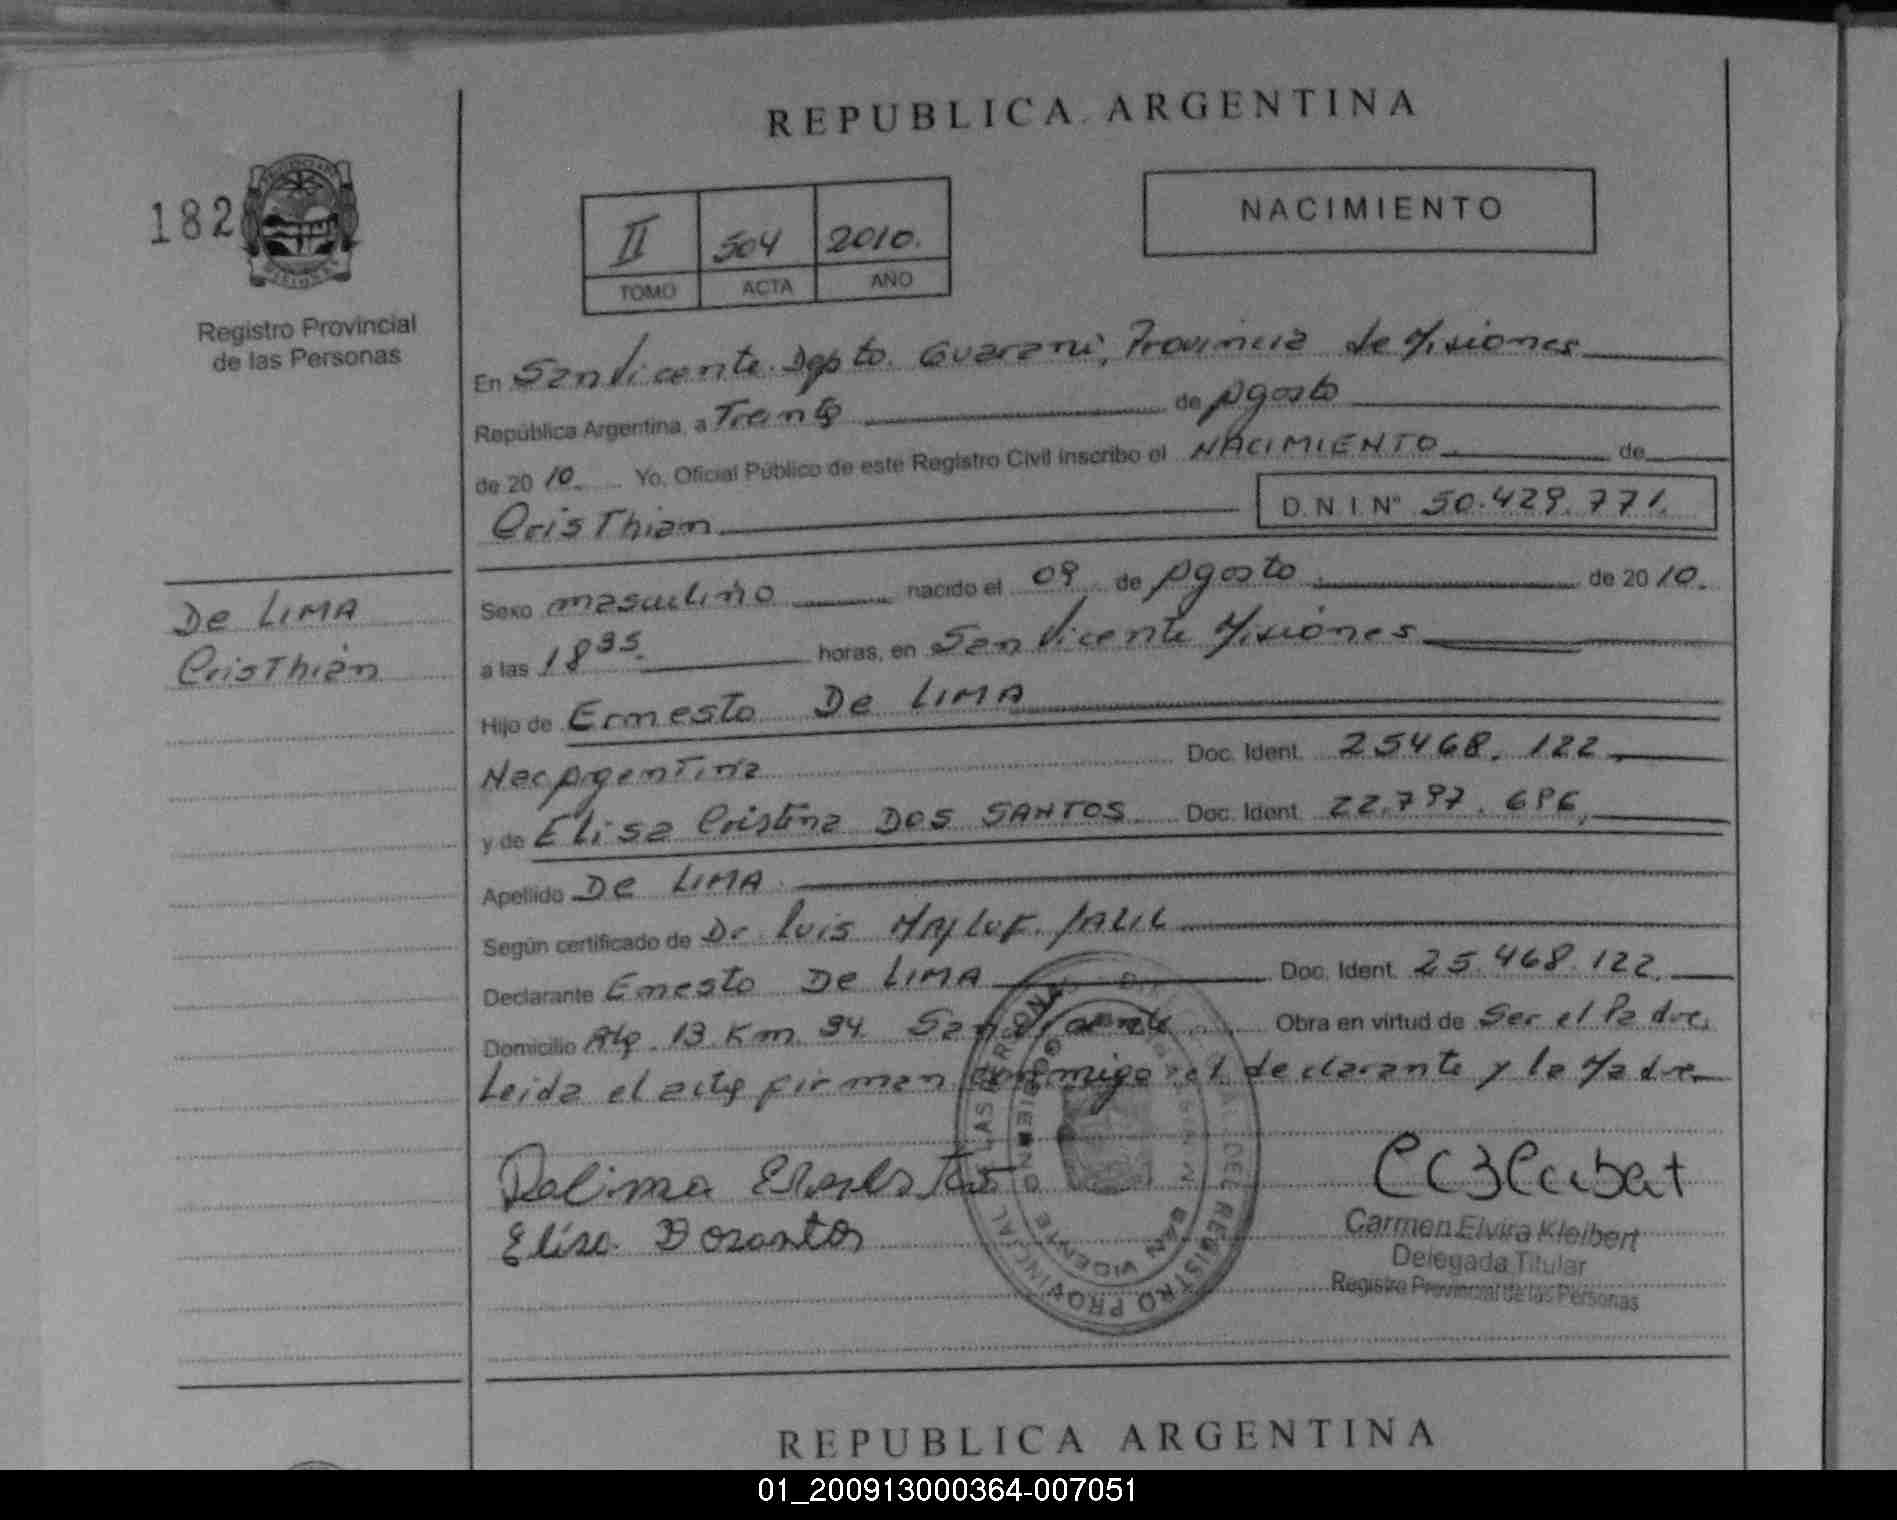 REPUBLICA ARGENTINA
182
NACIMIENTO
II 504 2010.
TOMO ACTA AÑO
Registro Provincial
de las Personas
En San Vicente. Dpto. Guarani, Provincia de Misiones
República Argentina, a Treinta de Agosto
de 20 10. Yo, Oficial Público de este Registro Civil inscribo el NACIMIENTO de
CrisThian D.N.I. Nº 50.429.771.
De LIMA
CrisThian
Sexo masculino nacido el 09 de Agosto de 20 10.
a las 18 35. horas, en San Vicente Misiones
Hijo de Ernesto De LIMA
Nac Argentina Doc. Ident. 25468.122
y de Elisa Cristina DOS SANTOS Doc. Ident. 22.797.696,
Apellido De LIMA
Según certificado de Dr Luis JALIL
Declarante Ernesto De LIMA Doc. Ident. 25.468.122.
Domicilio Km. 94. San Vicente Obra en virtud de Ser el Padre,
Leida el acta firman conmigo el declarante y la Madre
Delima Ernesto
Elisa Dosantos
Carmen Elvira Kleibert
Delegada Titular
Registro Provincial de las Personas
REGISTRO PROVINCIAL LAS PERSONAS
GOBIERNO
SAN VICENTE
REPUBLICA ARGENTINA
01_200913000364-007051